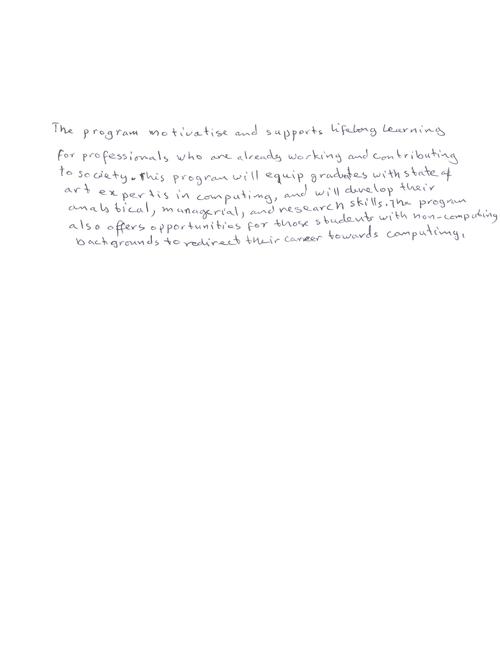 The program motivatise and supports lifelong learning
for professionals who are already working and contributing
to society. This program will equip graduates with state of
art expertis in computing, and will develop their
analytical, managerial, and research skills. The program
also offers opportunities for those students with non-computing
backgrounds to redirect their career towards computing.